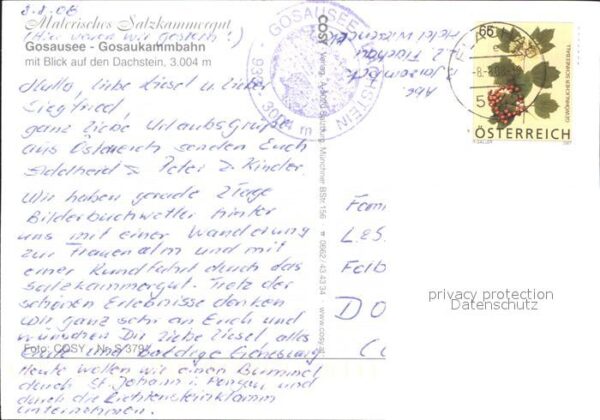 8.8.08
Malerisches Salzkammergut
(Hier waren wir gestern!)
Gosausee - Gosaukammbahn
mit Blick auf den Dachstein, 3.004 m
Hallo, liebe Liesel u. lieber
Siegfried,
ganz liebe Urlaubsgrüße
aus Österreich senden Euch
Edelheid & Peter & Kinder.
Wir haben gerade 2 Tage
Bilderbuchwetter hinter
uns mit einer Wanderung
zur Frauenalm und mit
einer Rundfahrt durch das
Salzkammergut. Trotz der
schönen Erlebnisse denken
wir ganz sehr an Euch und
wünschen Dir, liebe Liesel, alles
Gute und baldige Genesung!
Foto: COSY, Nr. S 379
Heute wollen wir einen Bummel
durch St. Johann i. Pongau und
durch die Liechtensteinklamm
unternehmen.
GOSAUSEE DACHSTEIN
3004 m
COSY Verlag, Salzburg Münchner BStr. 156 0662/43 43 34 www.cosy.at
Abs.
Hotel
Flachau
65
8.-8.08
GEWÖHNLICHER SCHNEEBALL
ÖSTERREICH
2007
Fam
Les
Falb
DO
privacy protection
Datenschutz